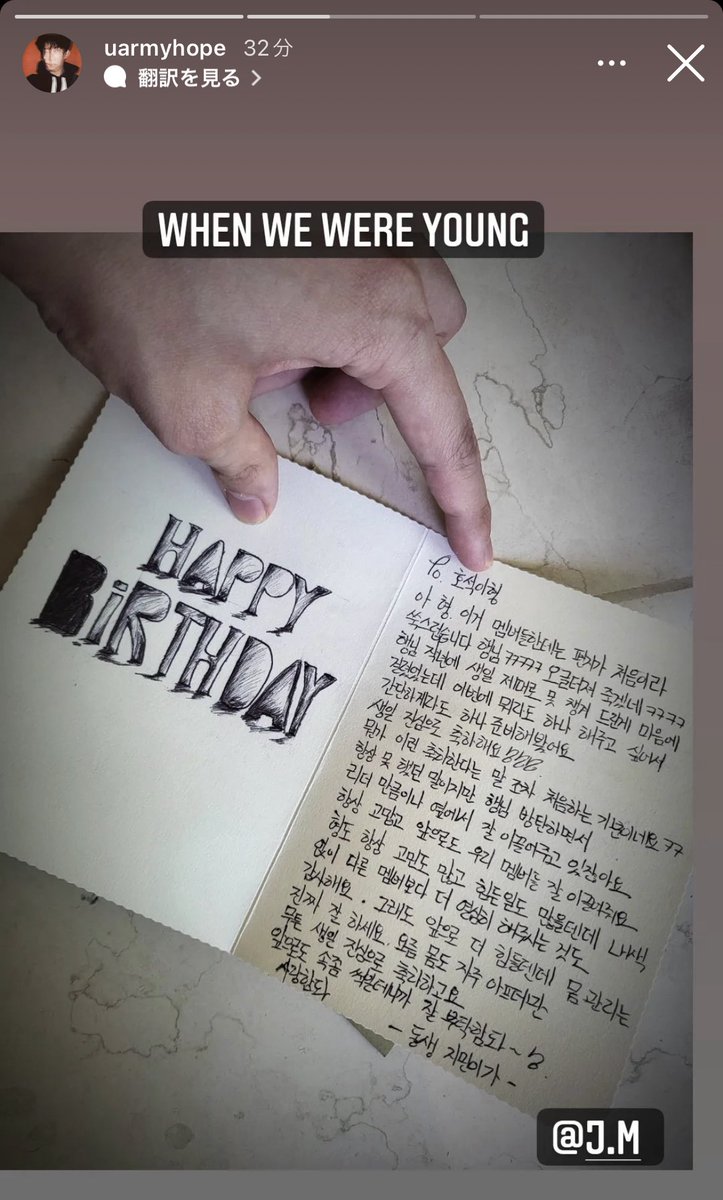 uarmyhope 32分
翻訳を見る
WHEN WE WERE YOUNG
HAPPY
BiRTHDAY
To. 호석이형
아 형 이거 멤버들한테는 편지가 처음이라
쑥스럽습니다 형님 ㅋㅋㅋㅋ 오글터져 죽겠네 ㅋㅋㅋㅋ
형님 작년에 생일 제대로 못 챙겨 드린게 마음에
걸렸었는데 이번에 뭐라도 하나 해주고 싶어서
간단하게라도 하나 준비해봤어요
생일 진심으로 축하해요
뭔가 이런 축하한다는 말 조차 처음하는 기분이네요 ㅋㅋ
항상 못 했던 말이지만 형님 방탄하면서
리더 만큼이나 옆에서 잘 이끌어주고 있잖아요
항상 고맙고 앞으로도 우리 멤버들 잘 이끌어줘요
형도 항상 고민도 많고 힘든일도 많을텐데 내색
없이 다른 멤버보다 더 열심히 해주시는 것도
감사해요. 그래도 앞으로 더 힘들텐데 몸 관리는
진짜 잘 하세요. 요즘 몸도 자주 아프더니만
무튼 생일 진심으로 축하하고요
앞으로도 속좀 썩일테니까 잘 부탁함돠~
사랑함돠
- 동생 지민이가 -
@J.M